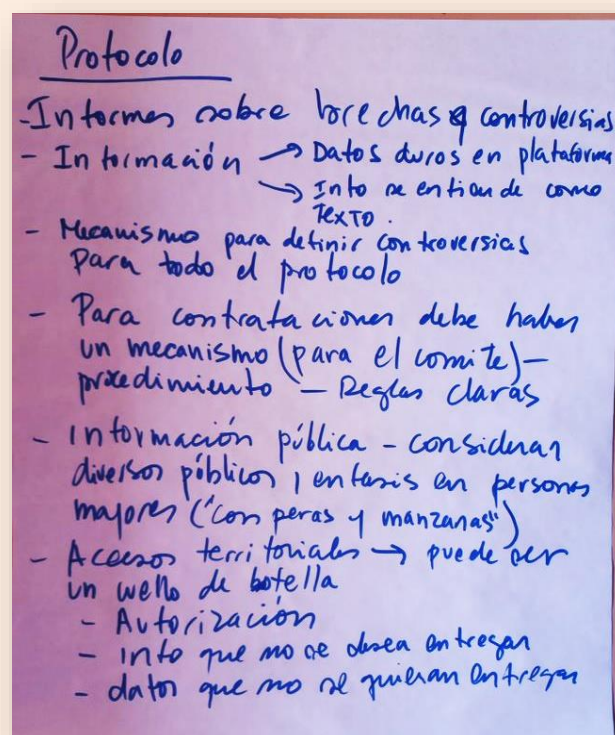 Protocolo
- Informes sobre brechas y controversias
- Información → Datos duros en plataforma
→ Info se entiende como
TEXTO.
- Mecanismo para definir controversias
para todo el protocolo
- Para contrataciones debe haber
un mecanismo (para el comite) –
procedimiento – Reglas claras
- información pública – considerar
diversos públicos, enfasis en personas
mayores ("con peras y manzanas")
- Accesos territoriales → puede ser
un cuello de botella
- Autorización
- info que no se desea entregar
- datos que no se quieran entregar